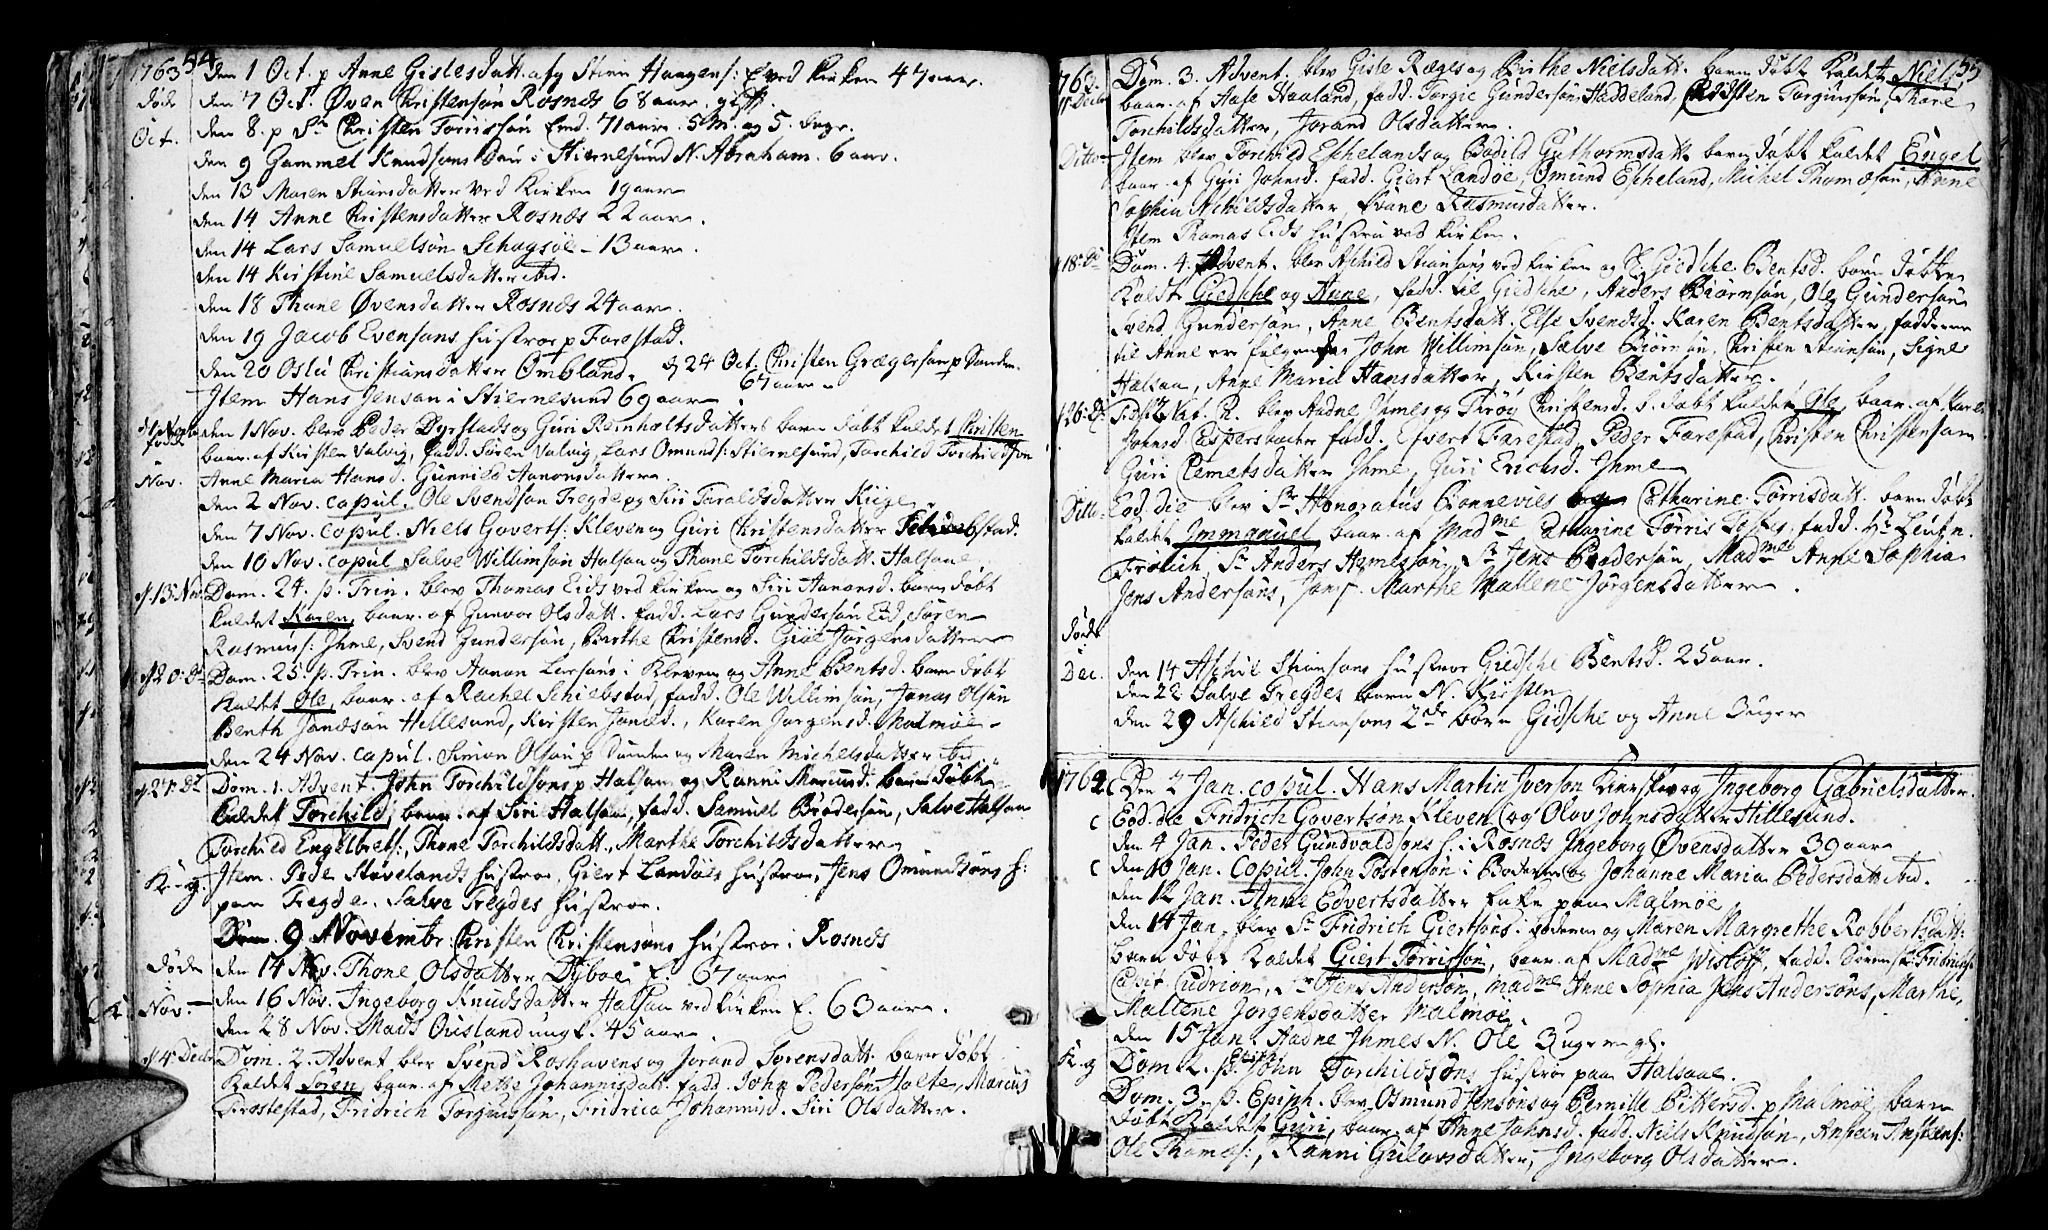 1763 54
den 1 Oct. p Anne Gislesdatt. afg Stiin Haagens: E ved kirken 47 aar.
døde den 7 Oct. Øven Christensøn Rosnes 68 aar. gift.
Oct. den 8. p Sr Christen Torrissøn 71 aar. 5 M. og 5. Dage.
den 9 Gammel Knudsøns barn i Stiernesund N. Abraham. 6 aar.
den 13 Maren Stiansdatter ved kirken 19 aar
den 14 Anne Christensdatter Rosnes 22 aar.
den 14 Lars Samuelsøn Schagsøe - 13 aar.
den 14 Kirstine Samuelsdatter ibid.
den 18 Thone Øvensdatter Rosnes 24 aar.
den 19 Jacob Evensøns hustroe p Farestad.
den 20 Oslu Christiansdatter Ombland. d 24 Oct. Christen Grægersøn p Sanden.
67 aar
Item Hans Jensøn i Stiernesund 69 aar.
den 1 Nov. blev Peder Dyrstads og Guri Reinholtsdatters barn døbt kaldet Christen
født baar. af Kirsten Valvig, fadd. Søren Valvig, Lars Omunds: Stiernesund, Torchild Torchildsøn
Nov. Anne Maria Hansd. Gunvild Aanonsdatter.
den 2 Nov. copul. Ole Svendsøn Fregde og Siri Taraldsdatter Kige
den 7 Nov. copul. Niels Goverts: Kleven og Guri Christensdatter
den 10 Nov. copul Salve Willimsøn Halsaa og Thone Torchildsdatt. Halsaae
d. 13. Nov. Dom. 24. p. Trin. blev Thomas Eids ved kirken og Siri Aanonsd. barn døbt
kaldet Karen, baar. af Gunvor Olsdatt. fadd. Lars Gundersøn Eid, Søren
Rasmus: Ihme, Svend Gundersøn, Birthe Christensd. Giøe Jørgensdatter
d 20. Do Dom. 25. p. Trin. blev Aanon Larsøns i Kleven og Anne Bentsd. barn døbt
kaldet Ole, baar. af Rachel Schiebstad, fadd. Ole Willimsøn, Jonas Olsøn
Benth Jonæsøn Hillesund, Kirsten Jonæd., Karen Jørgensd. Malmøe
den 24 Nov. copul. Simon Olsøn p Sanden og Maren Michelsdatter ibid
d 27. Do Dom. 1. Advent. John Torchildsøns p Halsaa og Ranni Marcusd. barn døbt
kaldet Torchild, baar. af Siri Halsaa, fadd. Samuel Brodersøn, Salve Halsaa
Torchild Engelbrets:, Thone Torchildsdatt., Marthe Torchildsdatter
K-g. Item. Peder Støvelands hustroe, Giert Landøes hustroe, Jens Omundsøns h:
paa Fregde. Salve Fregdes hustroe.
9 Novembr. Christen Christensøns hustroe i Rosnes
døde den 14 Nov. Thone Olsdatter Dyboe E. 67 aar
Nov. den 16 Nov. Ingeborg Knudsdatter Halsaa ved kirken E. 63 aar.
den 28 Nov. Mads Ousland ungk. 45 aar
d 4 Decbr. Dom. 2. Advent blev Svend Roshavens og Jorand Sørensdatt. barn døbt
kaldet Søren, baar. af Mette Johannisdatt. fadd. John Pedersøn Holte, Marcus
Frostestad, Fridrich Torgiussøn, Fridrica Johannisd. Siri Olsdatter.
1763. 55
11 Decbr Dom. 3. Advent. blev Gisle Ræges og Birthe Nielsdatt. barn døbt kaldet Niels
baar. af Aase Haaland, fadd. Torgie Gundersøn Haddeland, Christen Torgiussøn, Thore
Torchildsdatter, Jorand Olsdatter.
Ditto Item blev Torchild Eschelands og Bodild Guthormsdatt. barn døbt kaldet Engel
baar. af Guri Johnsd. fadd. Giert Landøe, Omund Escheland, Michel Thomæsøn, Anne
Sophia Achildsdatter, Rasmusdatter.
Item Thomas Eids hustru ved kirken.
d 18. Do Dom. 4. Advent. blev Aschild Stiansøns ved kirken og Giedsche Bentsd. børn døbte
kaldt Giedsche og Anne, fadd. til Giedsche, Anders Biørnsøn, Ole Gundersøn
Svend Gundersøn, Anne Bentsdatt. Else Svendsd. Karen Bentsdatter, fadderne
til Anne ere følgende John Willimsøn, Salve Biørnsøn, Christen Stiansøn, Signe
Halsaa, Anne Maria Hansdatter, Kirsten Bentsdatter.
d 26. Do blev Aadne Ihmes og Thrøg Christensd. b. døbt kaldet Ole, baar. af Karen
Johnsd Espersbacher fadd. Efvert Farestad, Peder Farestad, Christen Christensøn
Guri Clemetsdatter Ihme, Guri Erichsd. Ihme
Ditto. Eod. die blev Sr Honoratus Bonnevies Catharine Torrisdatt. barn døbt
kaldet Immanuel baar. af Madme Catharine Torris fadd. Hr Leutn.
Frølich, Sr Anders Homessøn, Sr Jens Brodersøn, Madme Anne Sophia
Jens Andersøns, Marthe Mallene Jørgensdatter.
døde
Dec. den 14 Aschil Stiansøns hustroe Giedsche Bentsd. 25 aar.
den 22 Salve Fregdes barn N. Kirsten
den 29 Aschild Stiansøns 2de børn Gidsche og Anne 3 uger
1764. Den 2 Jan. copul. Hans Martin Iversøn og Ingeborg Gabrielsdatter
c Eod. die Fridrich Govertsøn Kleven og Olov Johnsdatter Hillesund.
den 4 Jan. Peder Gundvaldsøns h. i Rosnes Ingeborg Øvensdatter 39 aar
c den 10 Jan. copul. John Tostensøn i Boderne og Johanne Maria Pedersdatt ibid.
den 12 Jan. Anne Edvertsdatter Enke paa Malmøe
den 14 Jan. blev Sr Fridrich Giertsøns i boderne og Maren Margrethe Robbertsdatt:
barn døbt kaldet Giert Torrissøn, baar. af Madme Wisløff, fadd. Søren Fridrichs:
Capit. Cudriou, Sr Hans Andersøn, Madme Anne Sophia Jens Andersøns, Marthe
Mallene Jørgensdatter Malmøe.
den 15 Jan. Aadne Ihmes N. Ole 3 uger
K-g Dom 2. p. Epiph. John Torchildsøns hustroe paa Halsaae.
Dom. 3. p. Epiph. blev Osmund Jensøns og Pernille Pittersd. p Malmøe barn
døbt kaldet Guri, baar. af Anne Johnsd. fadd. Neils Knudsøn, Ansteen Anstens:
Ole Thomas:, Ranni Gulovsdatter, Ingeborg Olsdatter.